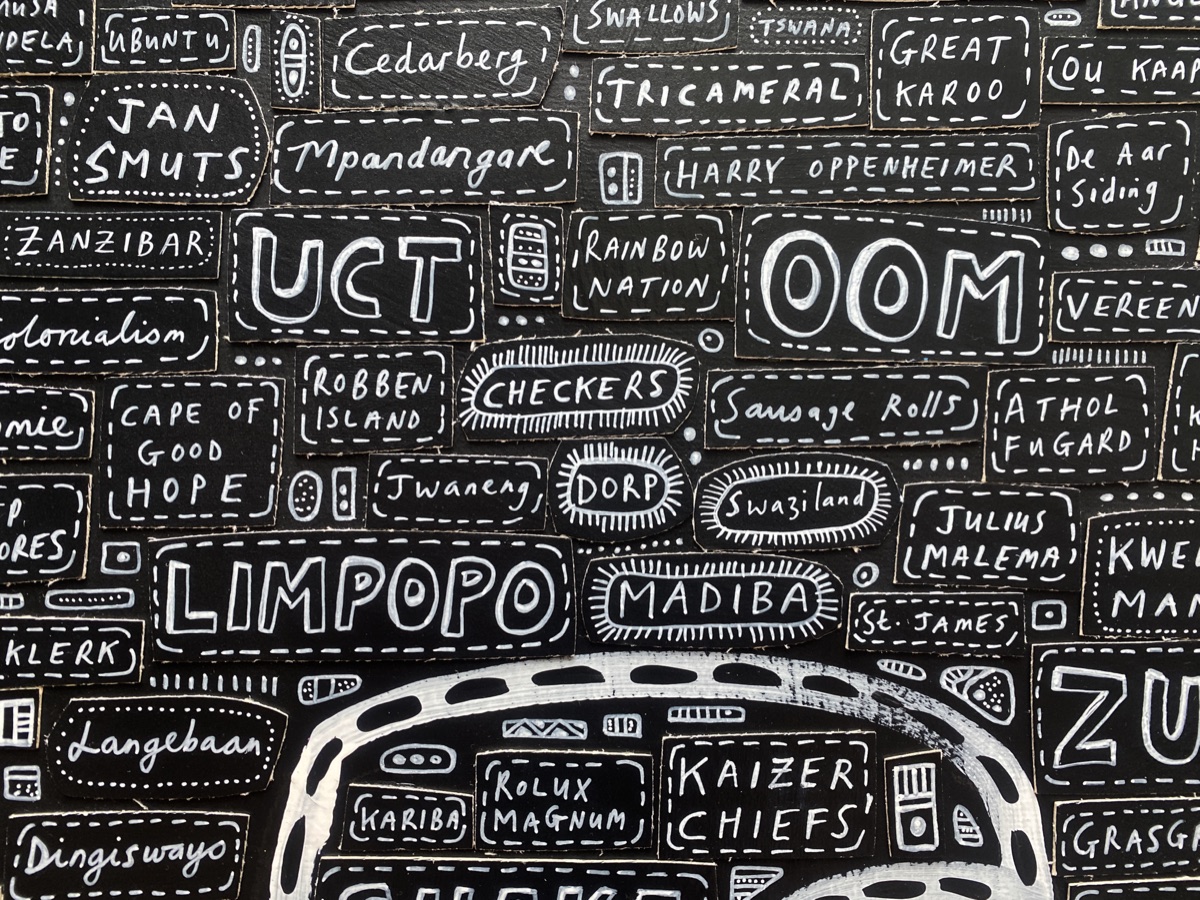 UBUNTU
Cedarberg
SWALLOWS
TSWANA
GREAT
KAROO
OU KAAP
TRICAMERAL
JAN
SMUTS
Mpandangare
HARRY OPPENHEIMER
De Aar
Siding
ZANZIBAR
UCT
RAINBOW
NATION
OOM
VEREEN
olonialism
CAPE OF
GOOD
HOPE
ROBBEN
ISLAND
CHECKERS
Sausage Rolls
ATHOL
FUGARD
Jwaneng
DORP
Swaziland
JULIUS
MALEMA
KWE
MA
ORES
LIMPOPO
MADIBA
St. JAMES
KLERK
ZU
Langebaan
KARIBA
ROLUX
MAGNUM
KAIZER
CHIEFS'
Dingiswayo
GRASG